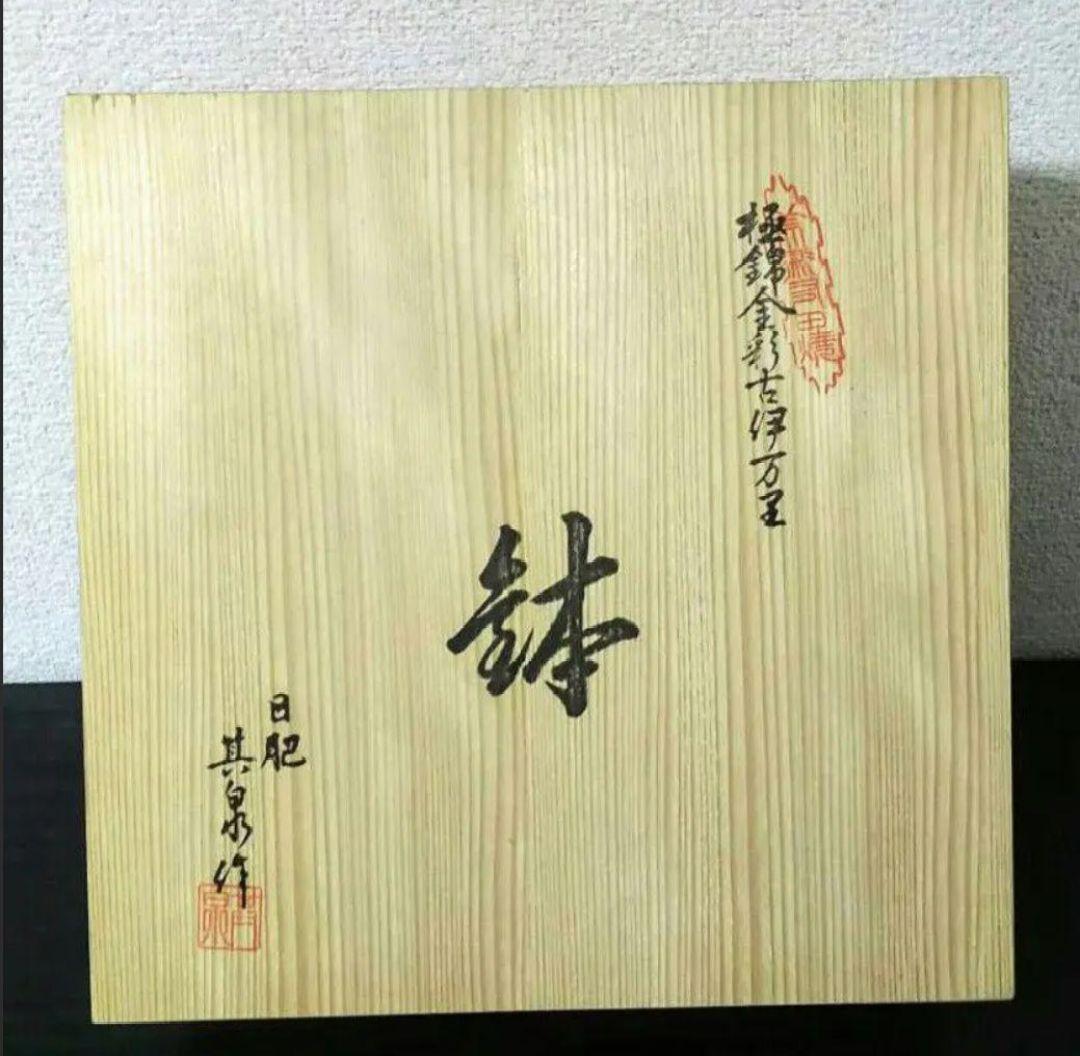 極錦金彩古伊万里
鉢
日肥
其泉作
其泉